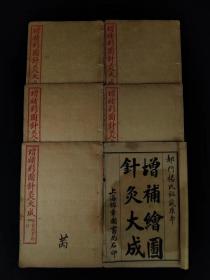 增補繪圖針灸大
增補繪圖針灸大
增補繪圖針灸大
增補繪圖針灸大
增補繪圖針灸大成
都門楊氏秘藏原本
增補繪圖
針灸大成
上海錦章圖書局石印